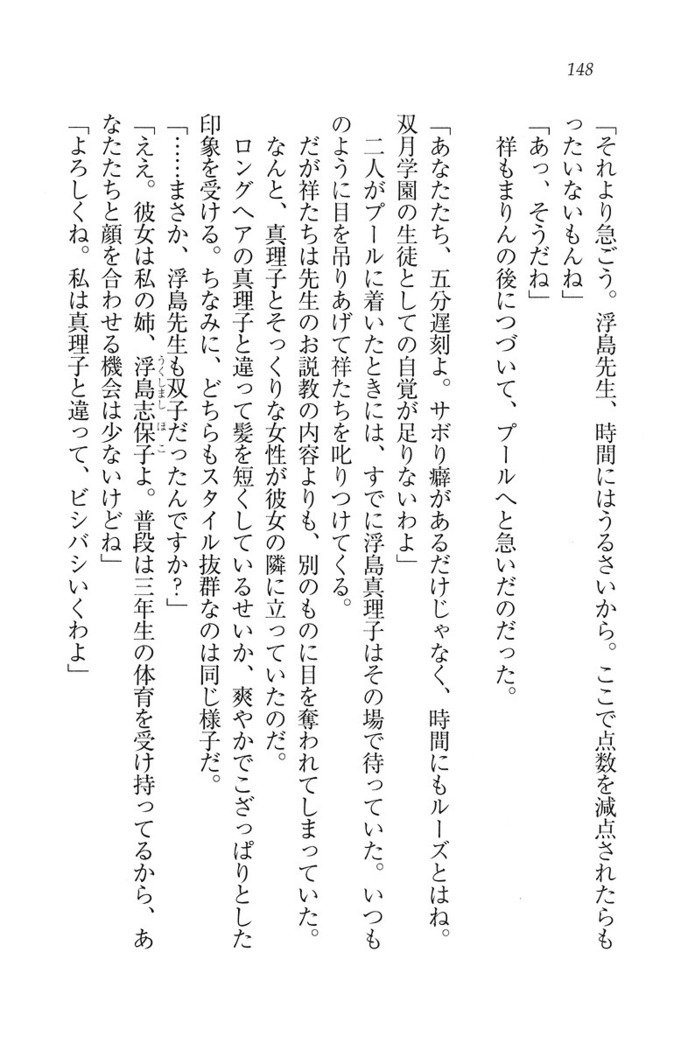 148
「それより急ごう。浮島先生、時間にはうるさいから。ここで点数を減点されたらも
ったいないもんね」
「あっ、そうだね」
祥もまりんの後につづいて、プールへと急いだのだった。
「あなたたち、五分遅刻よ。サボり癖があるだけじゃなく、時間にもルーズとはね。
双月学園の生徒としての自覚が足りないわよ」
二人がプールに着いたときには、すでに浮島真理子はその場で待っていた。いつも
のように目を吊りあげて祥たちを叱りつけてくる。
だが祥たちは先生のお説教の内容よりも、別のものに目を奪われてしまっていた。
なんと、真理子とそっくりな女性が彼女の隣に立っていたのだ。
ロングヘアの真理子と違って髪を短くしているせいか、爽やかでこざっぱりとした
印象を受ける。ちなみに、どちらもスタイル抜群なのは同じ様子だ。
「……まさか、浮島先生も双子だったんですか？」
「ええ。彼女は私の姉、浮島志保子よ。普段は三年生の体育を受け持ってるから、あ
うくしましほこ
なたたちと顔を合わせる機会は少ないけどね」
「よろしくね。私は真理子と違って、ビシバシいくわよ」